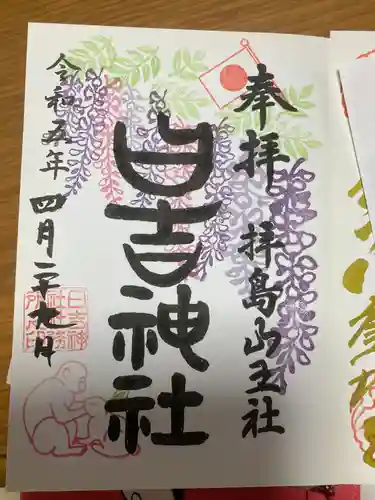 奉拝 拝島山王社
日吉神社
令和五年四月二十九日
日吉神
社社務
所之印